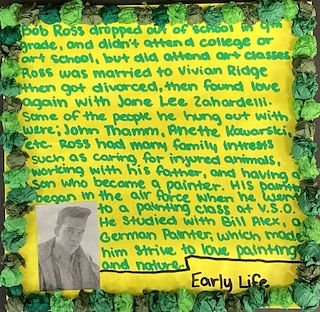 Bob Ross dropped out of school in 9th
grade, and didn't attend college or
art school, but did attend art classes.
Ross was married to Vivian Ridge
then got divorced, then found love
again with Jane Lee Zahardelli.
Some of the people he hung out with
were; John Thamm, Anette Kowarski,
etc. Ross had many family intrests
such as caring for injured animals,
working with his father, and having a
son who became a painter. His painting
began in the air force when he went
to a painting class at U.S.O.
He studied with Bill Alex,
German Painter, which made
him strive to love painting
and nature.
Early Life